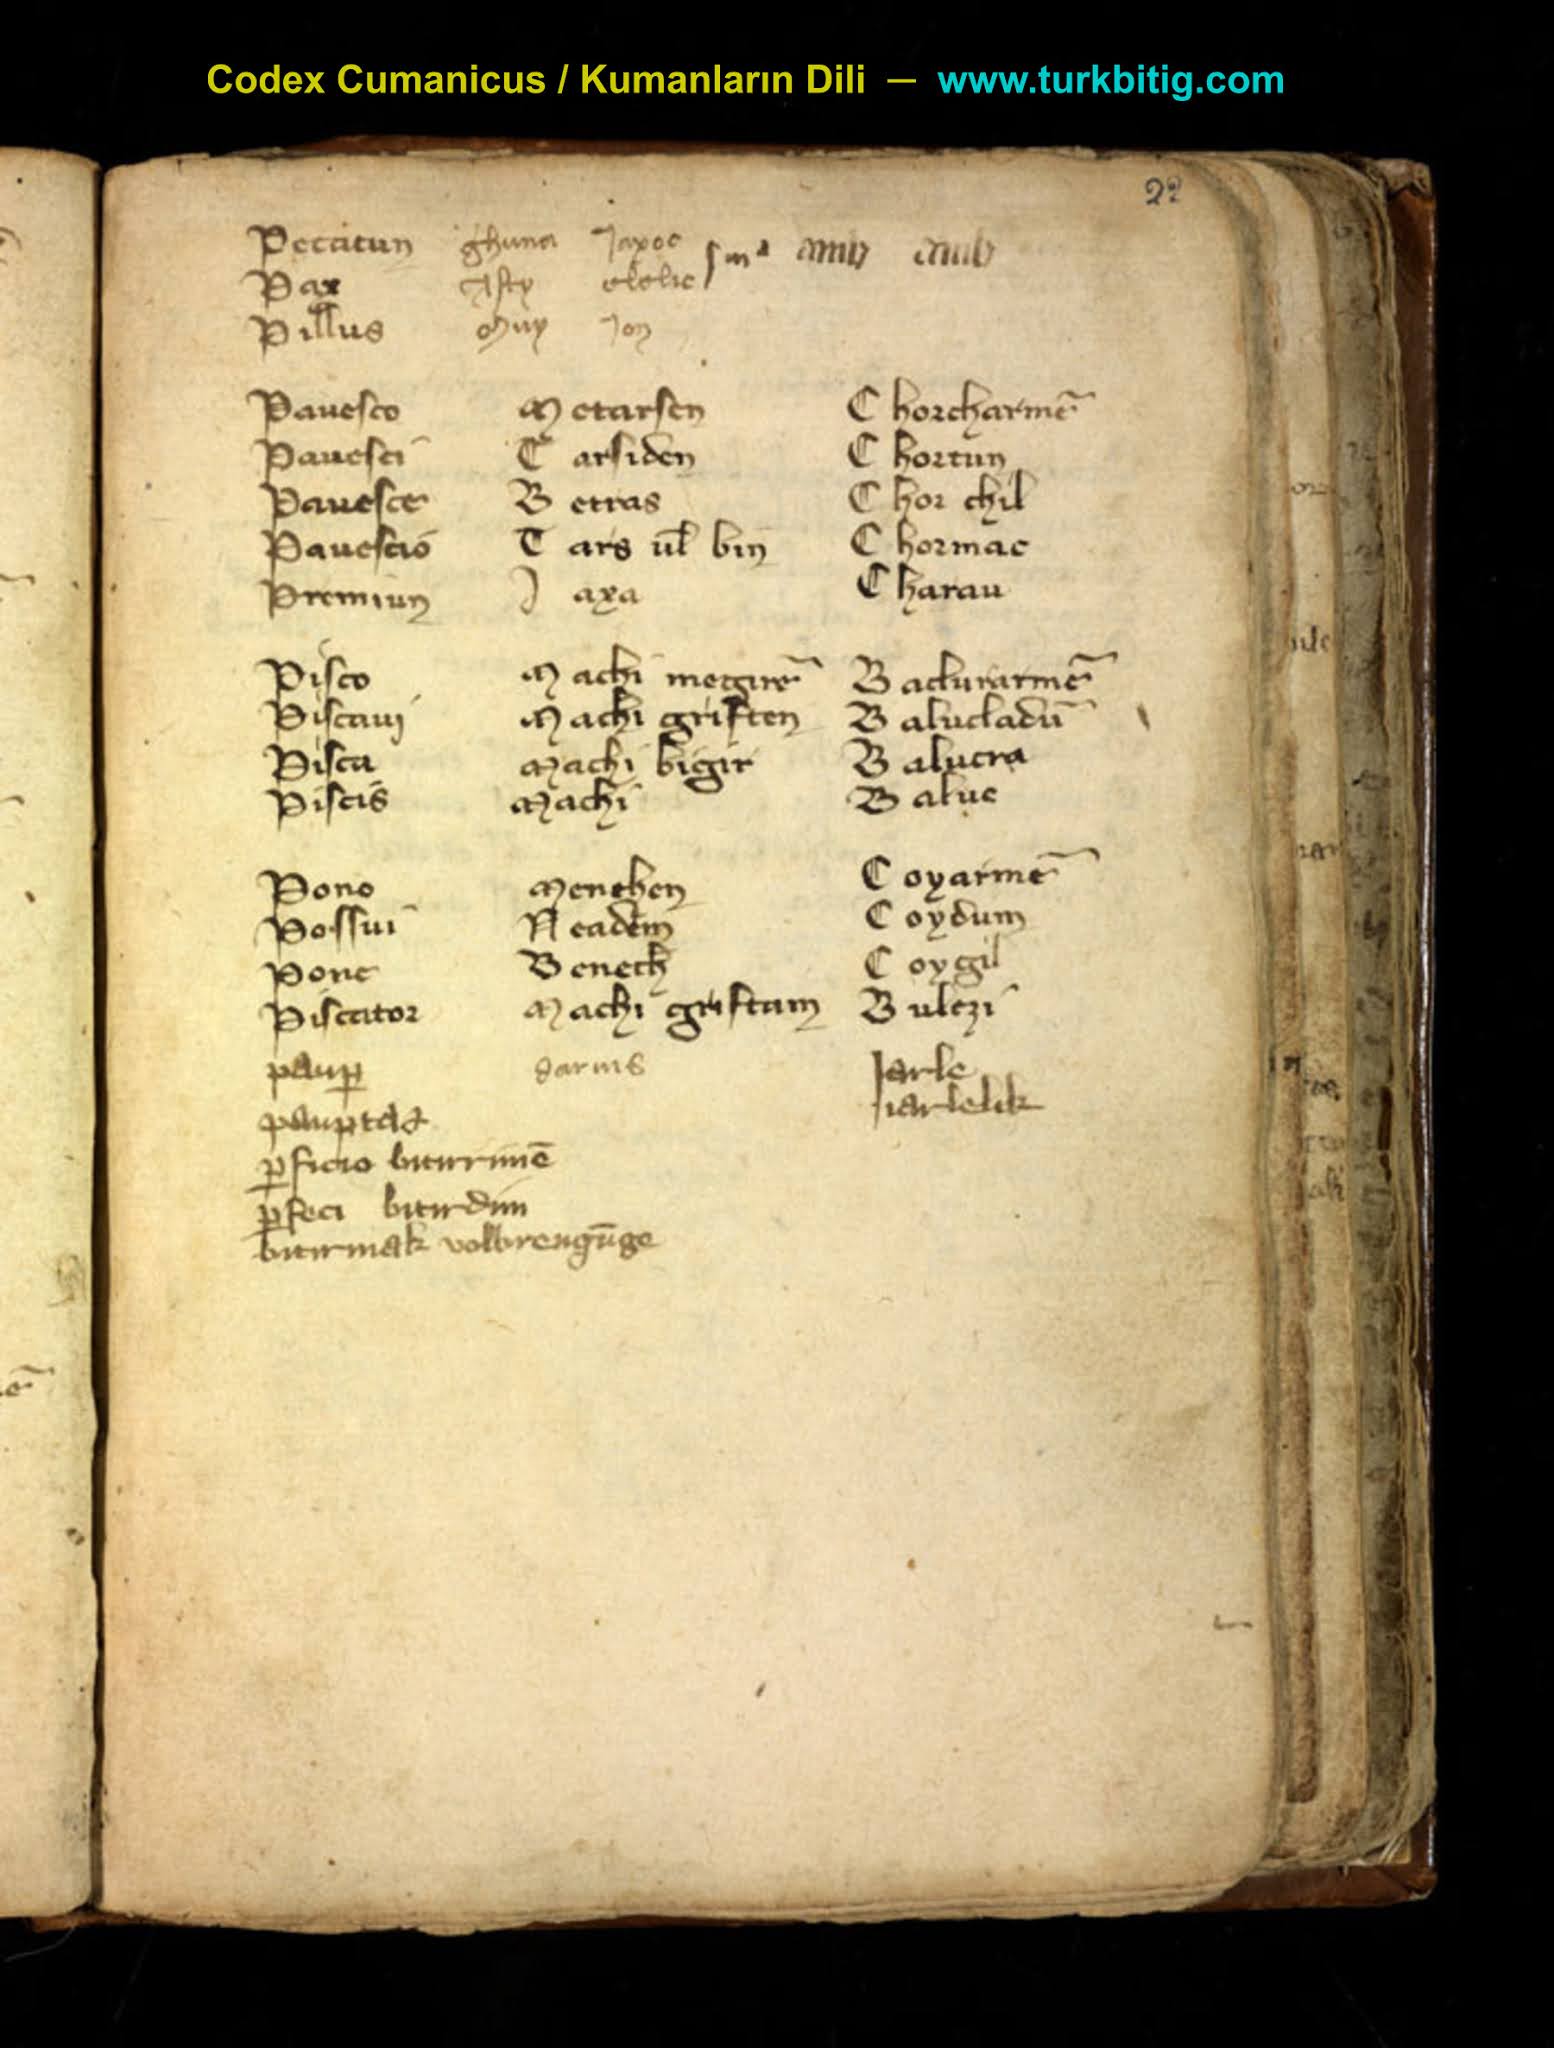 Codex Cumanicus / Kumanların Dili — www.turkbitig.com
22
Peccatun ghuna Jaxoc
Pax Asty elelic
Pillus Muy Jon
Pauesco Metarsen Chorcharmẽ
Pauesci Tarsiden Chortun
Pauesce Betras Chor chil
Pauescio Tars ul bin Chormac
Premiun Jaxa Charau
Pisco Machi megirẽ Balucturarmẽ
Piscaui Machi griften Baluctadũ
Pisca Machi bigir Baluctra
Piscis Machi Baluc
Pono Menehen Coyarmẽ
Possui Neadem Coydum
Pone Benech Coygil
Piscator Machi griftam Bulczi
paup darius Jarle
pauptas iarlelik
pficio bitirimẽ
pfeci bitirdim
bitirmak volbrengũge